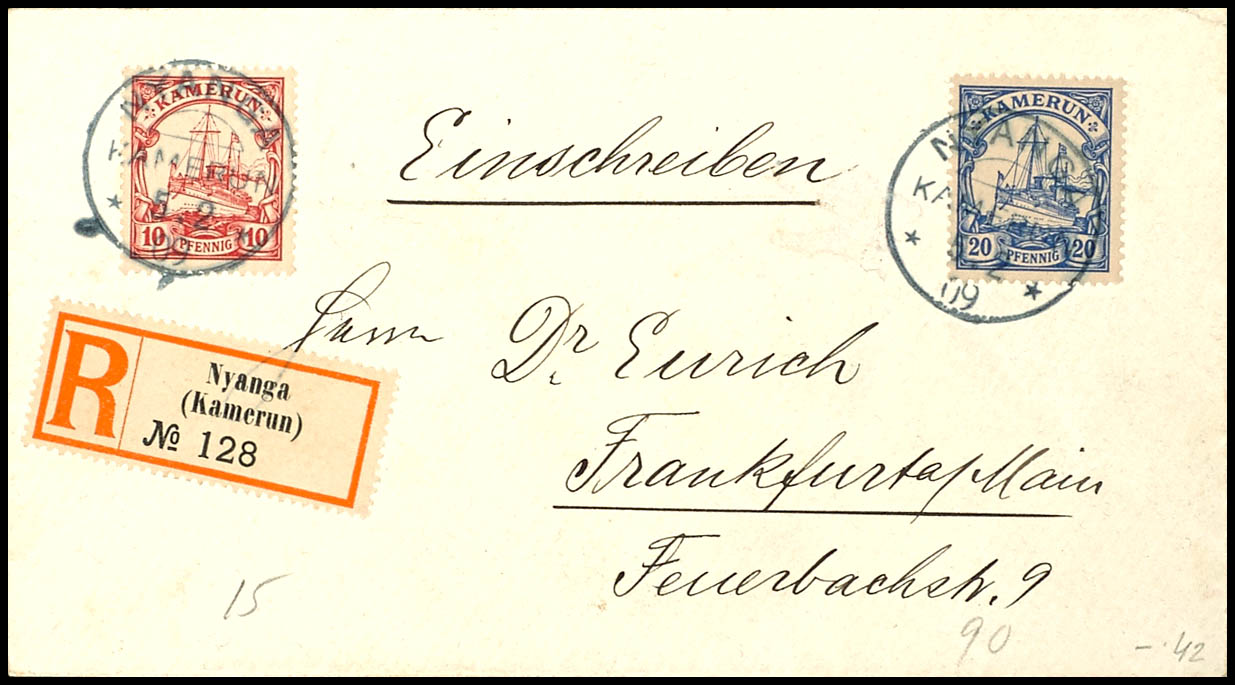 KAMERUN
10 PFENNIG 10
NYANGA
KAMERUN
5.2
09
Einschreiben
KAMERUN
20 PFENNIG 20
NYANGA
KAMERUN
5.2
09
R
Nyanga
(Kamerun)
№ 128
Herrn Dr. Eurich
Frankfurt a/Main
Feuerbachstr. 9
15
90
-.42